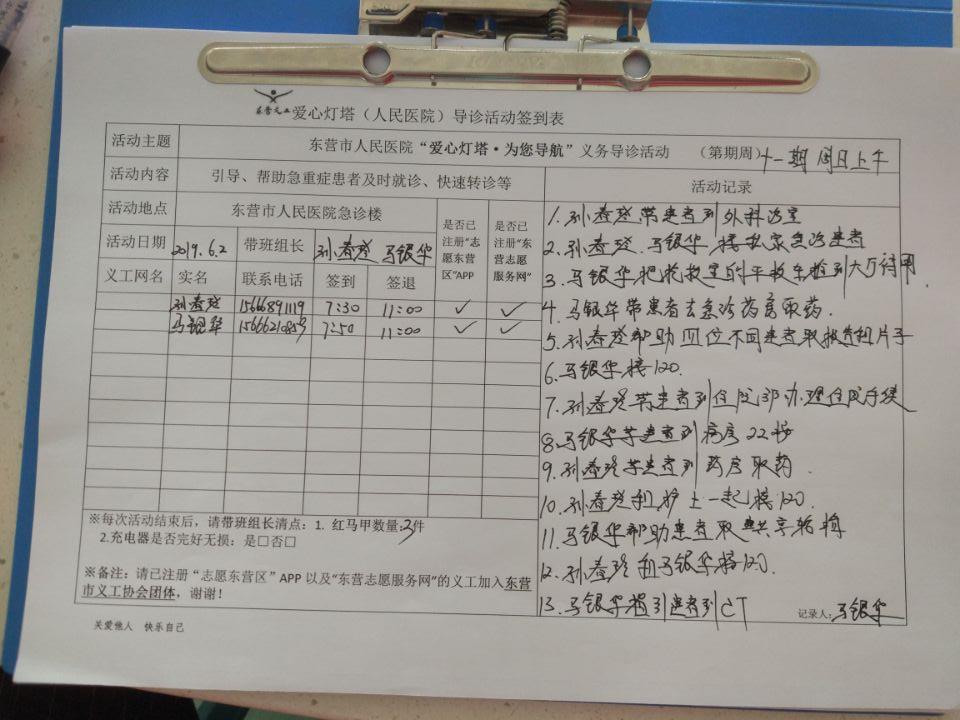 东营义工 爱心灯塔（人民医院）导诊活动签到表
活动主题 东营市人民医院“爱心灯塔·为您导航”义务导诊活动 （第期周）十一期 周日上午
活动内容 引导、帮助急重症患者及时就诊、快速转诊等 活动记录
活动地点 东营市人民医院急诊楼 是否已注册“志愿东营区”APP 是否已注册“东营志愿服务网”
活动日期 2019.6.2 带班组长 孙春 马银华
义工网名 实名 联系电话 签到 签退
孙春 15666891119 7:30 11:00 ✓ ✓
马银华 7:50 11:00 ✓ ✓
1.孙春 带患者到外科诊室
2.孙春 马银华 接 急诊患者
3.马银华把抢救室的平板车 到大厅
4.马银华带患者去急诊药房取药.
5.孙春 帮助四位不同患者取报告和片子
6.马银华接120.
7.孙春 带患者到住院部办理住院手续
8.马银华带患者到病房22楼
9.孙春 带患者到药房取药.
10.孙春 和护士一起接120
11.马银华帮助患者取共享轮椅
12.孙春 和马银华接120.
13.马银华指引患者到CT
※每次活动结束后，请带班组长清点：1. 红马甲数量:3件
2.充电器是否完好无损：是□否□
※备注：请已注册“志愿东营区”APP以及“东营志愿服务网”的义工加入东营
市义工协会团体，谢谢！
记录人:马银华
关爱他人 快乐自己